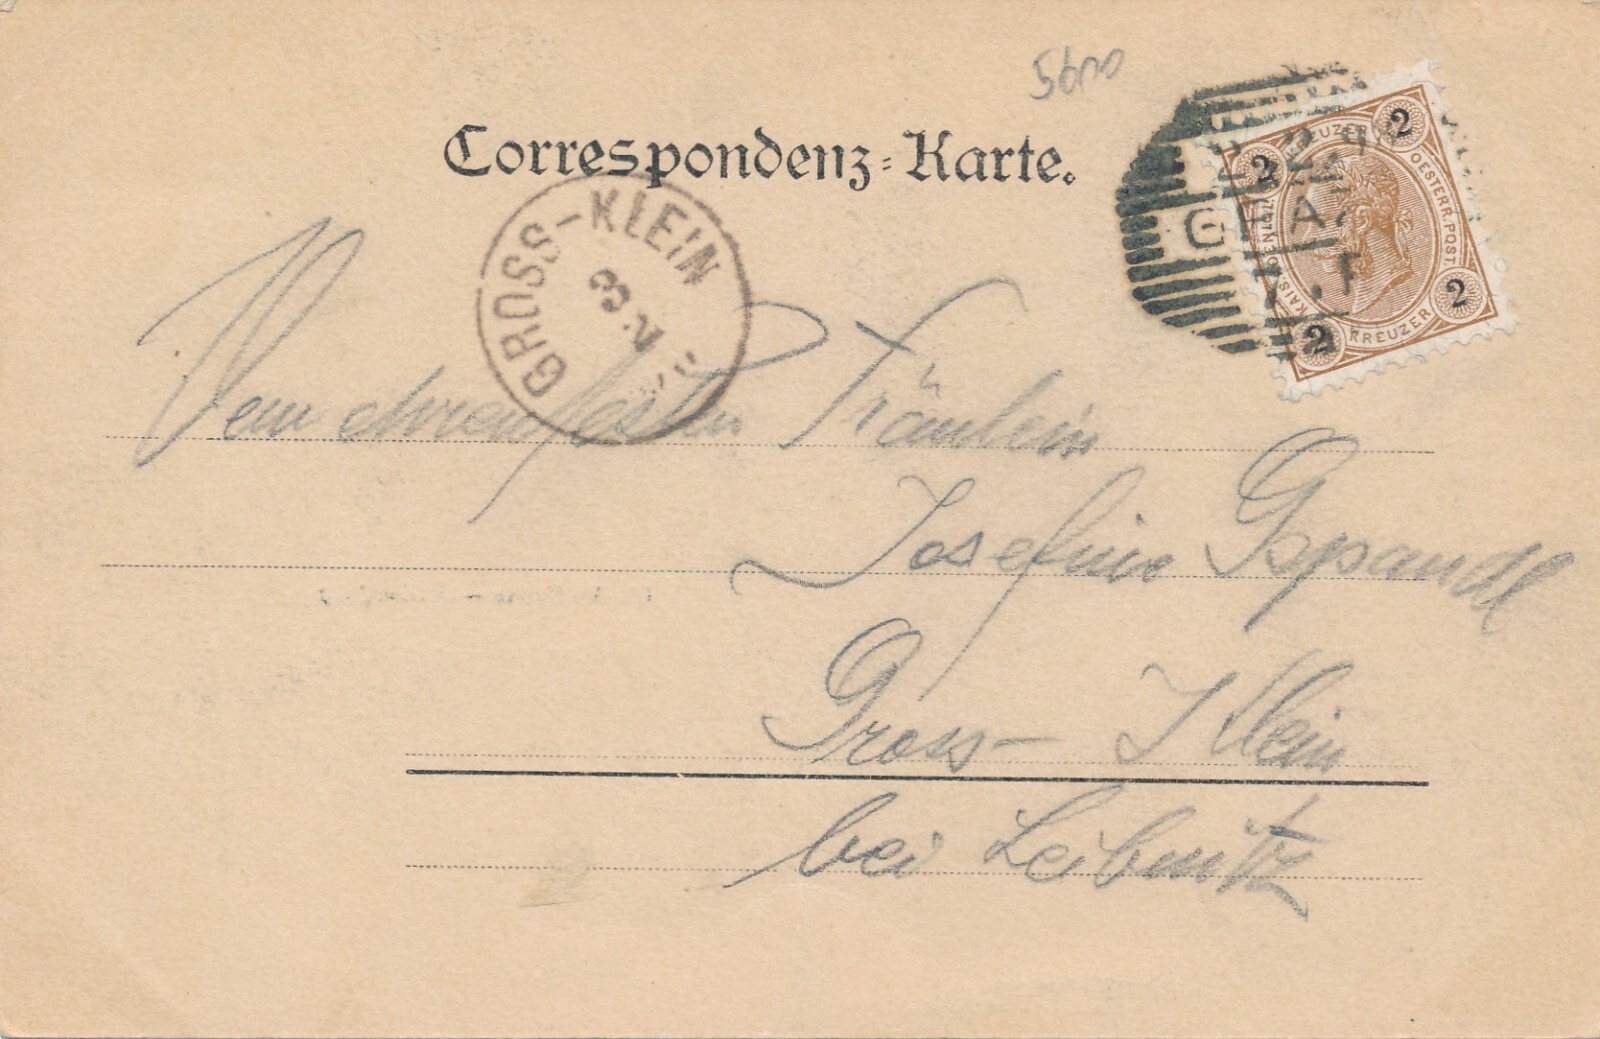 5600
Correspondenz-Karte.
GROSS-KLEIN
3
2
GRAZ
2
2
2
2
KREUZER
OESTERR. POST.
KREUZER
Dem ehrenfesten Fräulein
Josefine Gspandl
Gross-Klein
bei Leibnitz